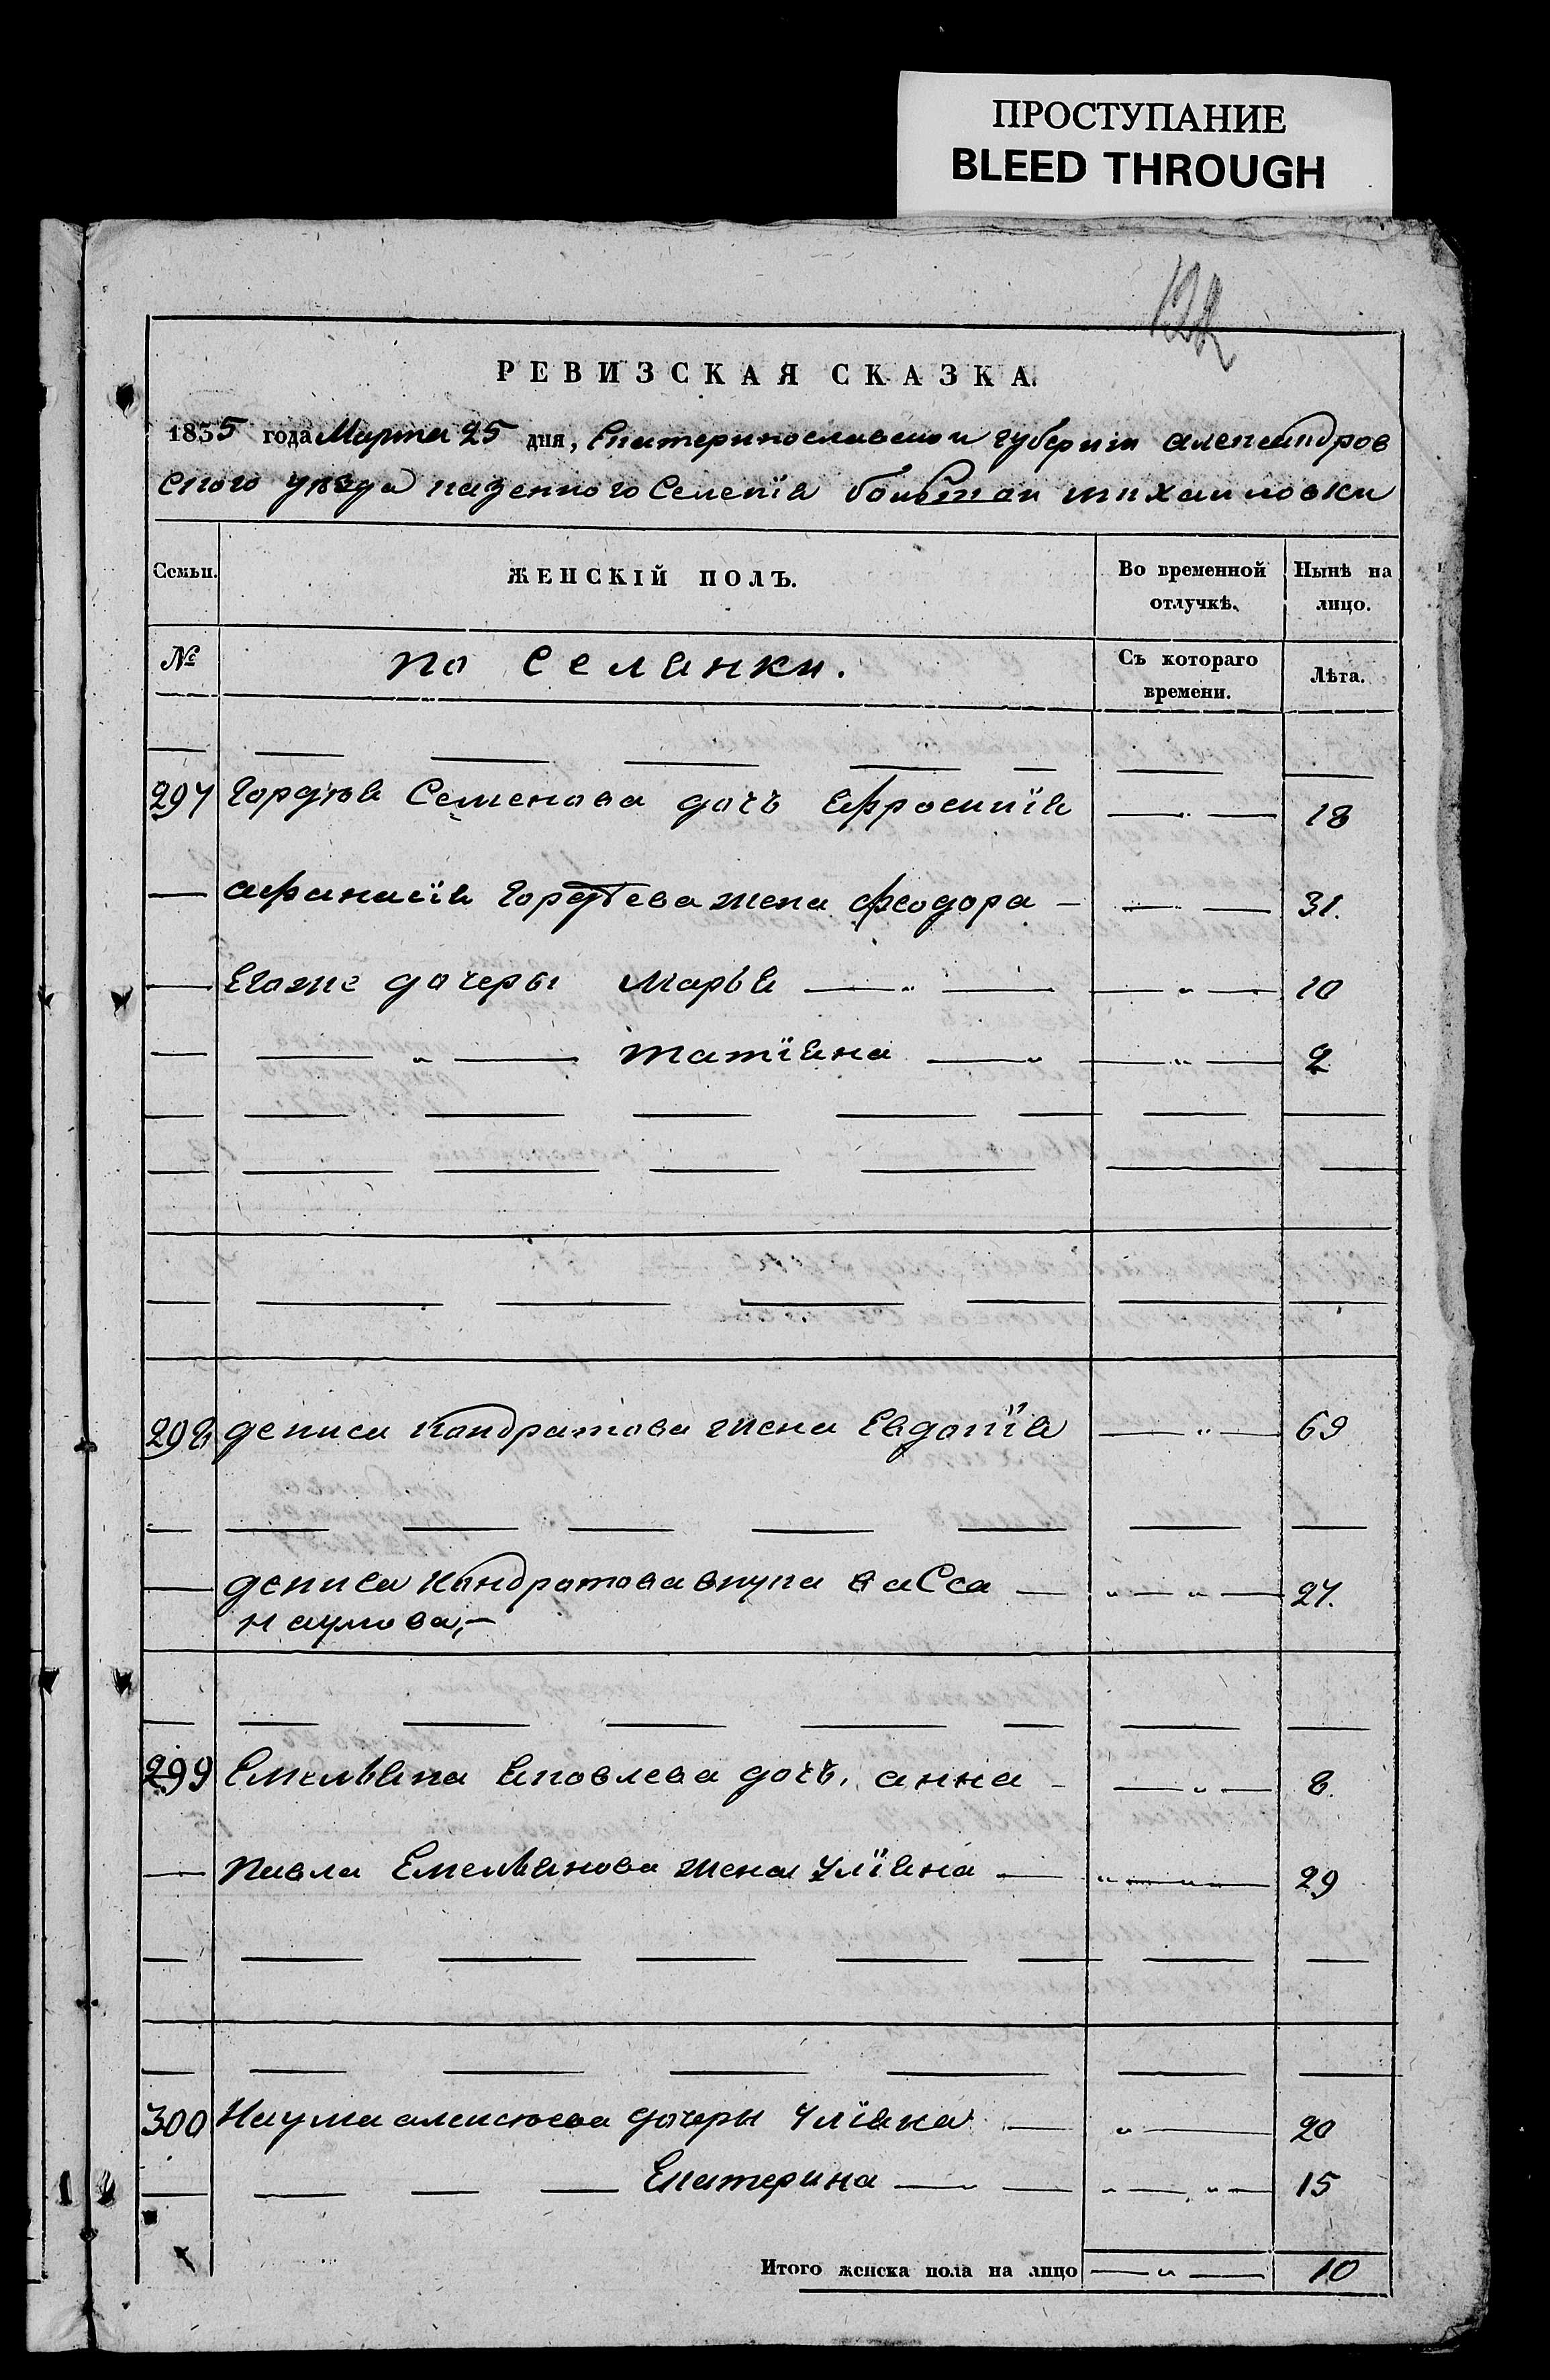 ПРОСТУПАНИЕ
BLEED THROUGH
122
РЕВИЗСКАЯ СКАЗКА.
1835 года Марта 25 дня, Екатеринославской губернии александров
ского уезда казенного Селенїя большой михайловки
Семьи. ЖЕНСКІЙ ПОЛЪ. Во временной отлучкѣ. Нынѣ на лицо.
№ поселянки. Съ котораго времени. Лѣта.
297 Гордѣя Семенова дочь Ефросинїя 18
афанасїя Гордѣева жена феодора 31.
Егоже дочеры Марья 10
татїяна 2
298 дениса кондратова жена Евдокїя 69
дениса кондратова внука васса 27.
наумова,
299 Емельяна яковлева дочь, анна 8.
павла Емельянова жена улїяна 29
300 Наума алексеева дочеры улїяна 20
Екатерина 15
Итого женска пола на лицо 10